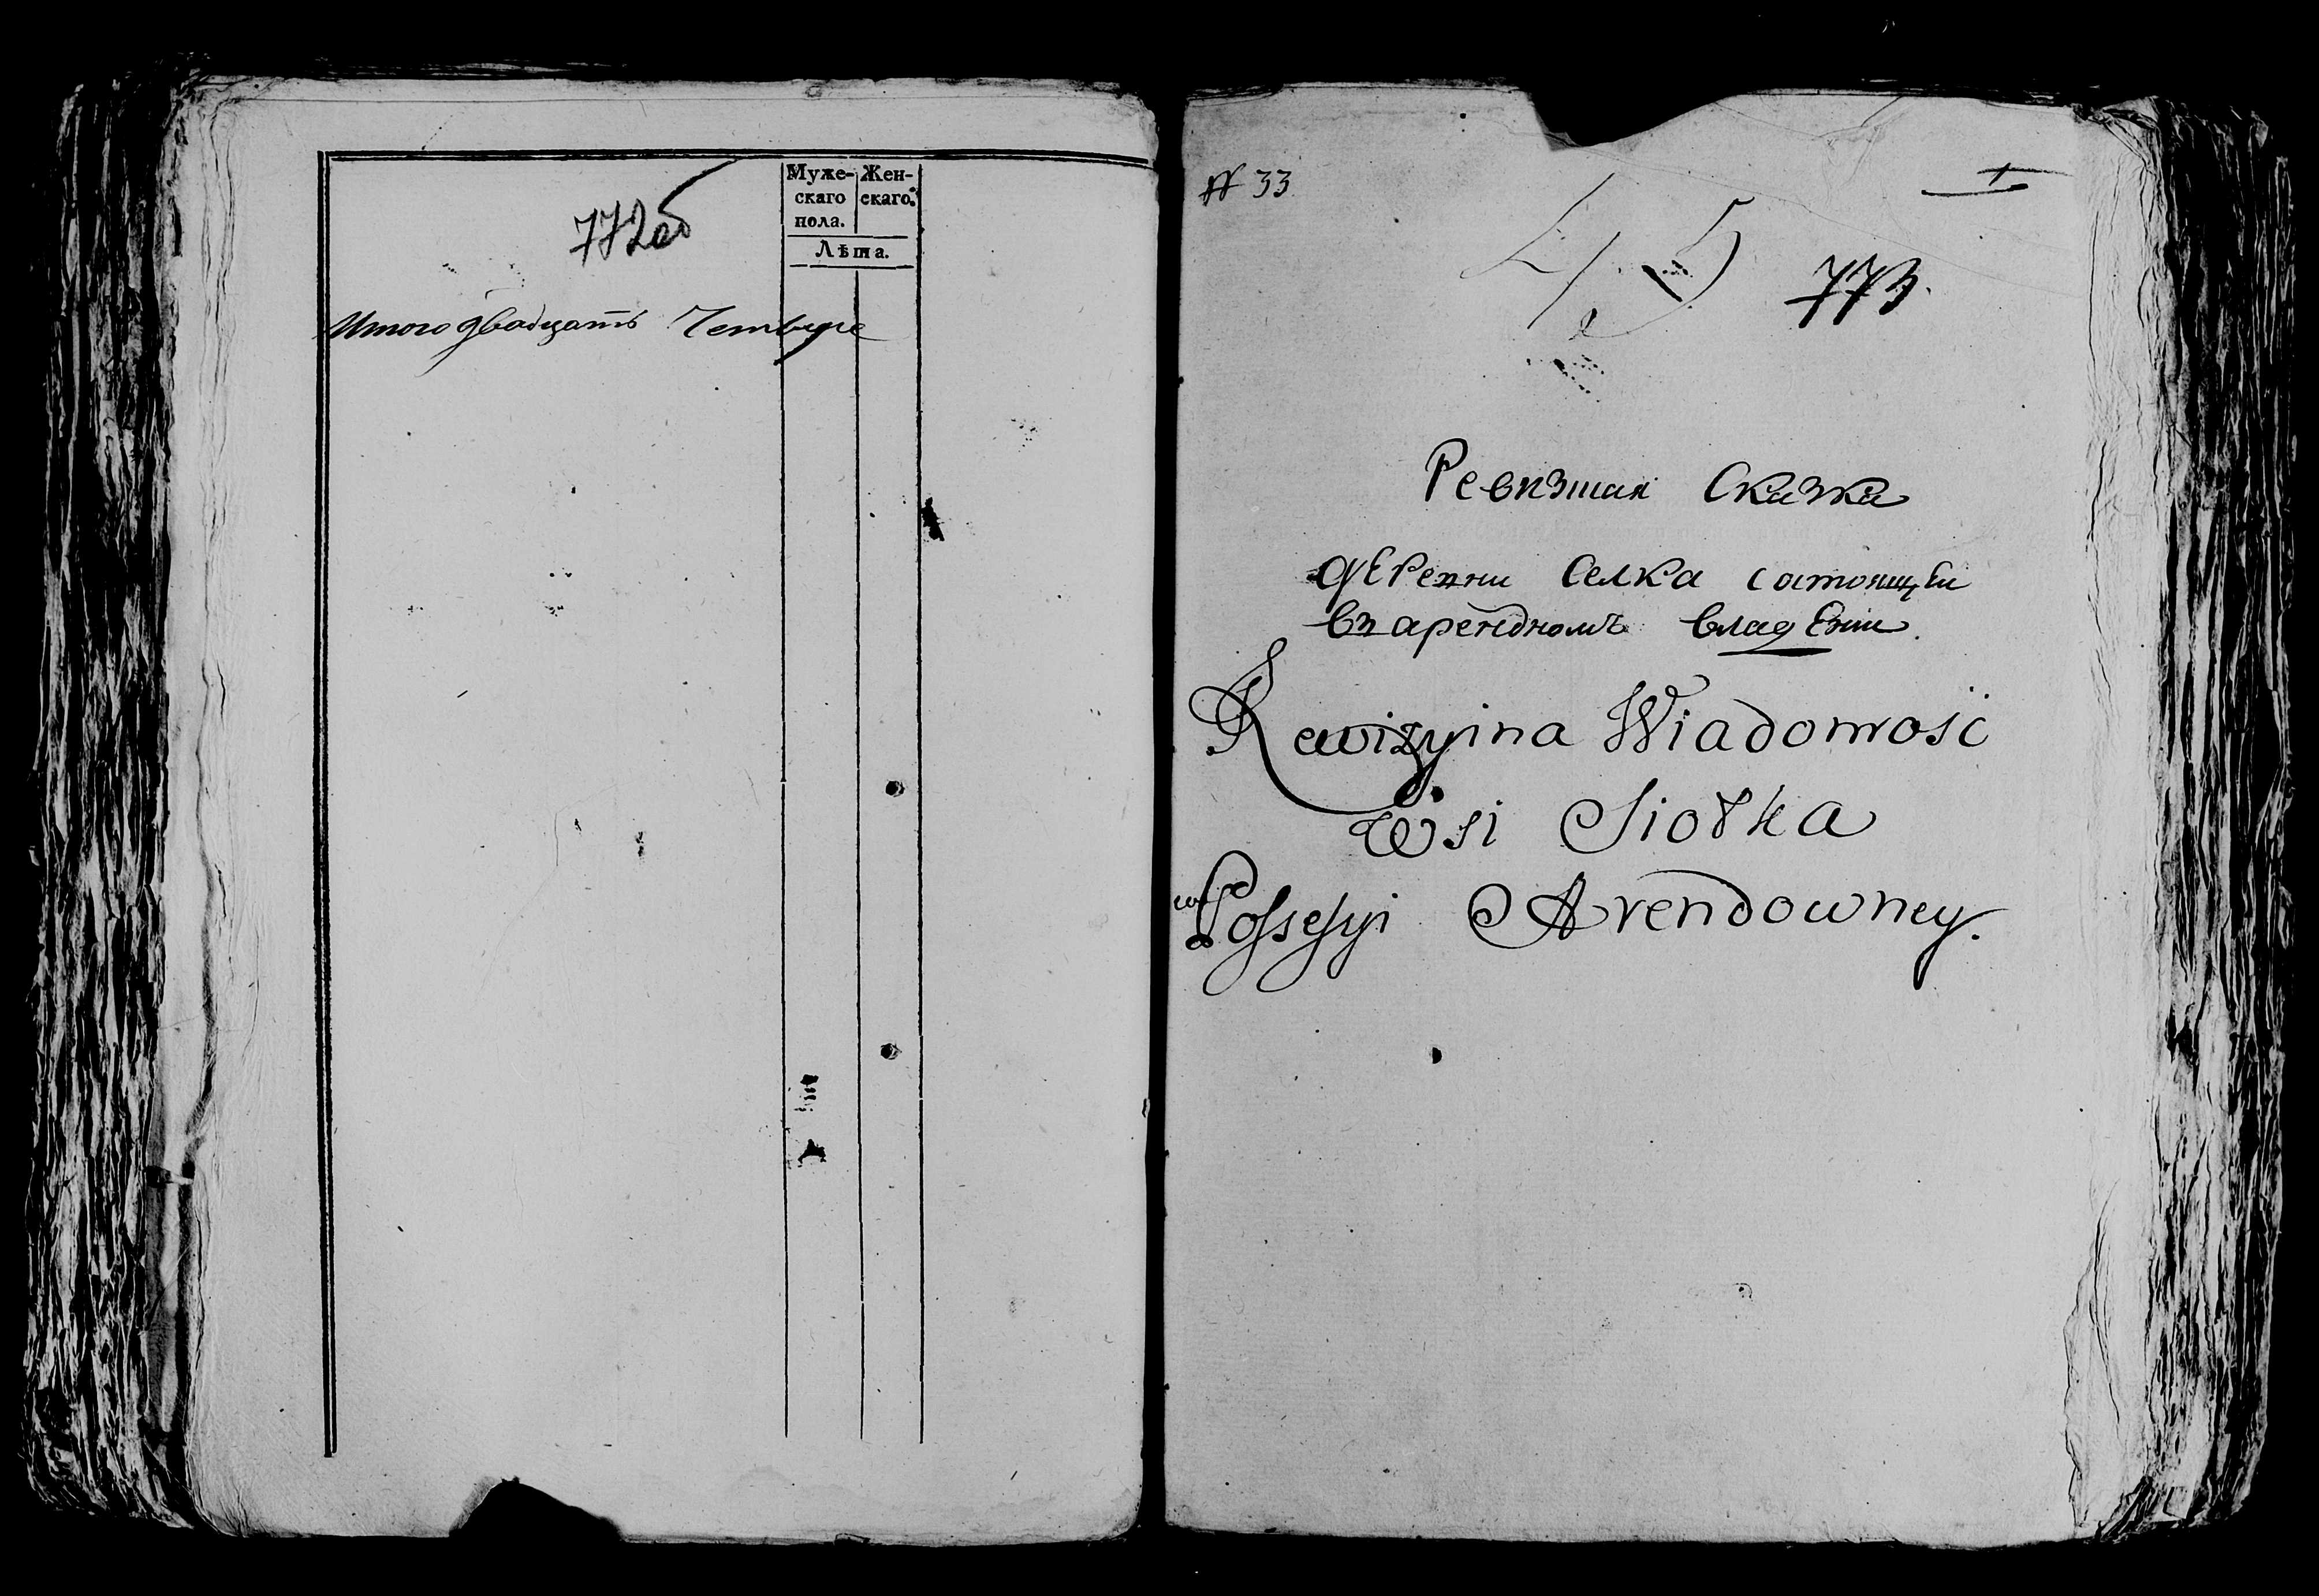 772об
Муже- Жен-
скаго скаго.
пола.
Лѣта.
Итого двадцать Четыре
№ 33
45
773
Ревизшая Сказка
деревни Селка состоящей
въ арендномъ владении
Rewizyina Wiadomość
Wsi Siołka
w Possessyi Arendowney.